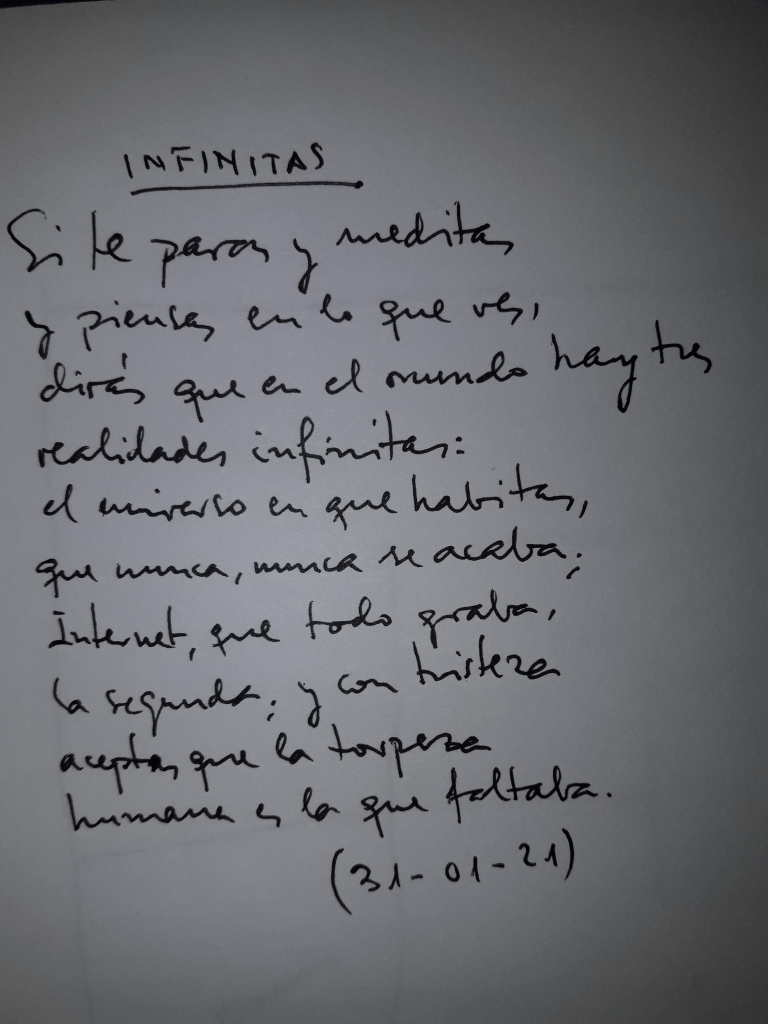 INFINITAS
Si te paras y meditas
y piensas en lo que ves,
dirás que en el mundo hay tres
realidades infinitas:
el universo en que habitas,
que nunca, nunca se acaba;
Internet, que todo graba,
la segunda; y con tristeza
aceptas que la torpeza
humana es la que faltaba.
(31-01-21)